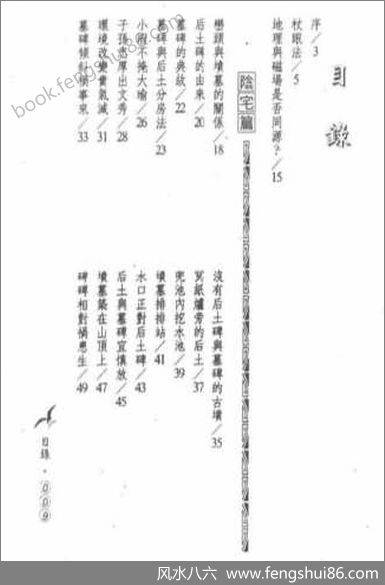 目錄
序／3
杖眼法／5
地理與磁場是否同源?／15
陰宅篇
巒頭與墳墓的關係／18
后土碑的由來／20
墓碑的典故／22
墓碑與后土分房法／23
小瑕不掩大瑜／26
子孫忠厚出文秀／28
環境改變氣減／31
墓碑傾斜橫事來／33
沒有后土碑與墓碑的古墳／35
冥紙爐旁的后土／37
兜池內挖水池／39
墳墓排排站／41
水口正對后土碑／43
后土與墓碑宜慎放／45
墳墓築在山頂上／47
碑碑相對禍患生／49
目錄・009
book.fengshui86.com
风水八六 www.fengshui86.com